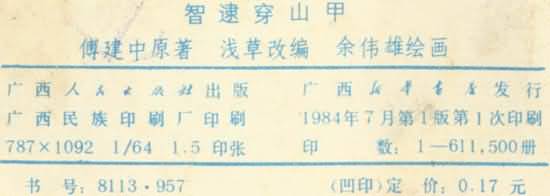 智逮穿山甲
傅建中原著 浅草改编 余伟雄绘画
广西人民出版社出版 广西新华书店发行
广西民族印刷厂印刷 1984年7月第1版第1次印刷
787×1092 1/64 1.5印张 印 数：1—611,500册
书 号：8113·957 (凹印)定 价：0.17 元